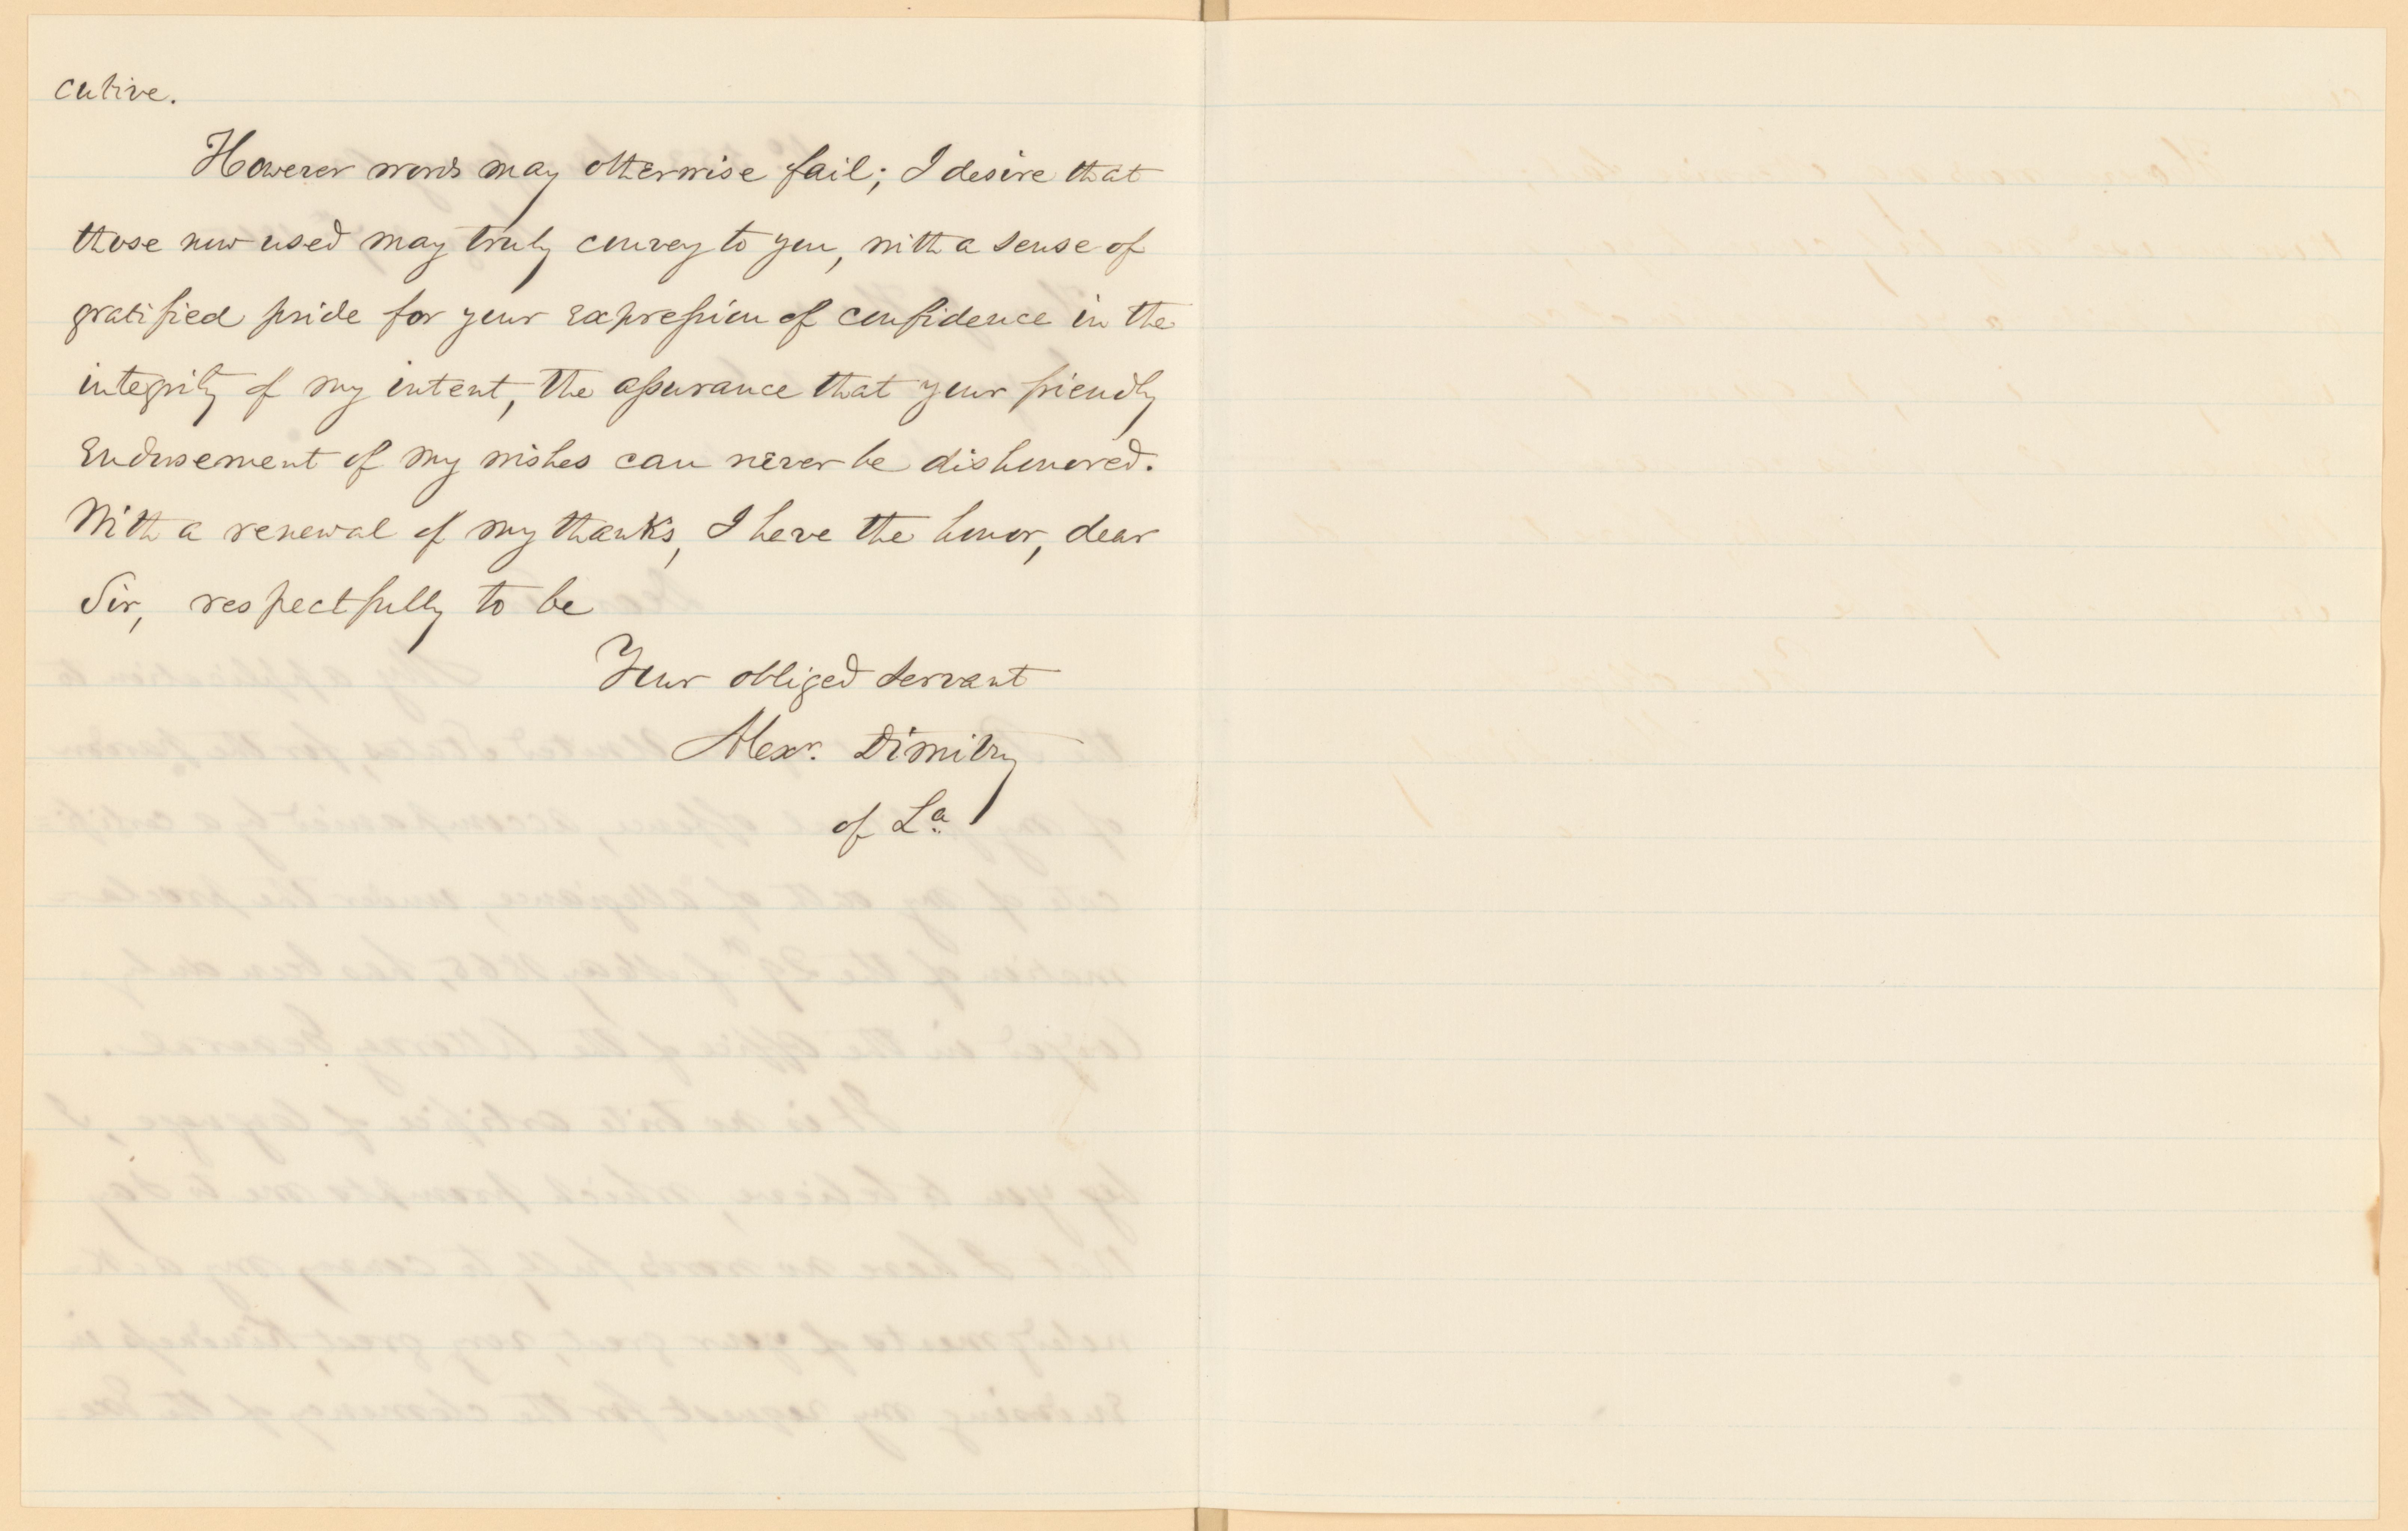 cutive.
However words may otherwise fail; I desire that
those now used may truly convey to you, with a sense of
gratified pride for your expression of confidence in the
integrity of my intent, the assurance that your friendly
endorsement of my wishes can never be dishonored.
With a renewal of my thanks, I have the honor, dear
Sir, respectfully to be
Your obliged servant
Alexr. Dimitry
of La